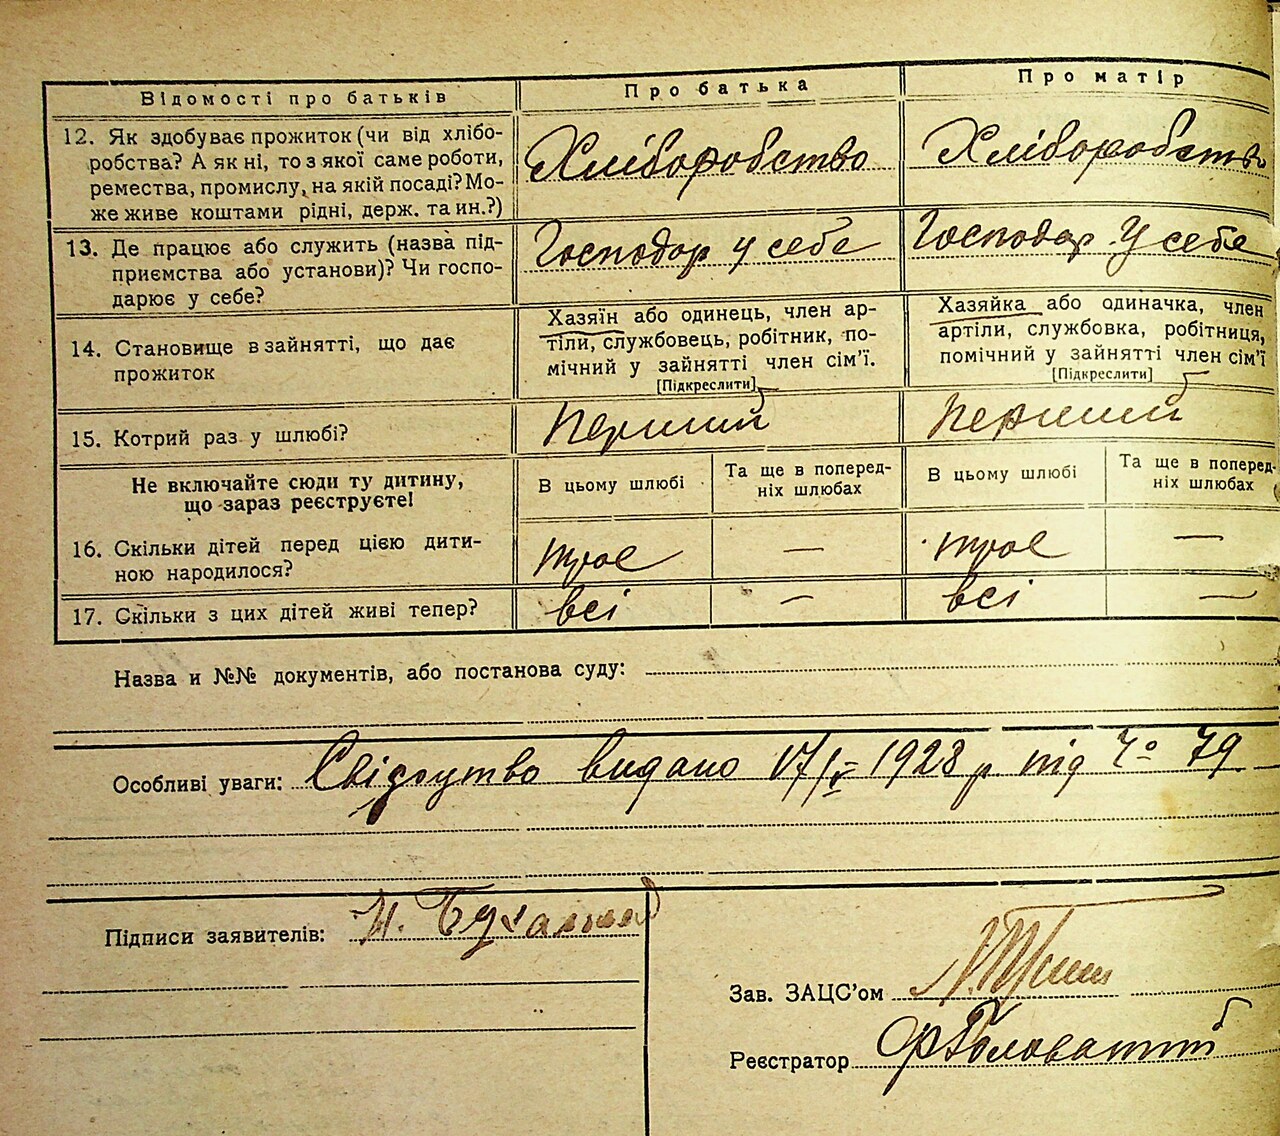 Відомості про батьків
Про батька
Про матір
12. Як здобуває прожиток (чи від хлібо-
робства? А як ні, то з якої саме роботи,
ремества, промислу, на якій посаді? Мо-
же живе коштами рідні, держ. та ин.?)
Хліборобство
Хліборобство
13. Де працює або служить (назва під-
приємства або установи)? Чи госпо-
дарює у себе?
Господар у себе
Господар у себе
14. Становище в зайнятті, що дає
прожиток
Хазяїн або одинець, член ар-
тіли, службовець, робітник, по-
мічний у зайнятті член сім’ї.
[Підкреслити]
Хазяйка або одиначка, член
артіли, службовка, робітниця,
помічний у зайнятті член сім’ї
[Підкреслити]
15. Котрий раз у шлюбі?
Перший
Перший
Не включайте сюди ту дитину,
що зараз реєструєте!
В цьому шлюбі
Та ще в поперед-
ніх шлюбах
В цьому шлюбі
Та ще в поперед-
ніх шлюбах
16. Скільки дітей перед цією дити-
ною народилося?
троє
—
троє
—
17. Скільки з цих дітей живі тепер?
всі
—
всі
—
Назва и №№ документів, або постанова суду:
Особливі уваги: Свідоцтво видано 17/V 1928 р під № 79
Підписи заявителів:
Зав. ЗАЦС’ом
Реєстратор Головатий